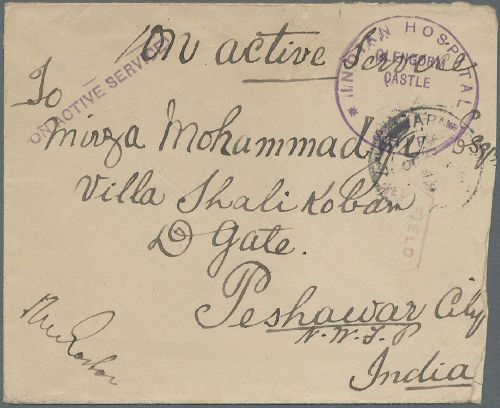 On active Service
ON ACTIVE SERVICE
INDIAN HOSPITAL
GLENGORM
CASTLE
To
Mirza Mohammad
Esqr
Villa Shali Koban
D Gate.
FIELD
Peshawar City
N.W.F.P
India